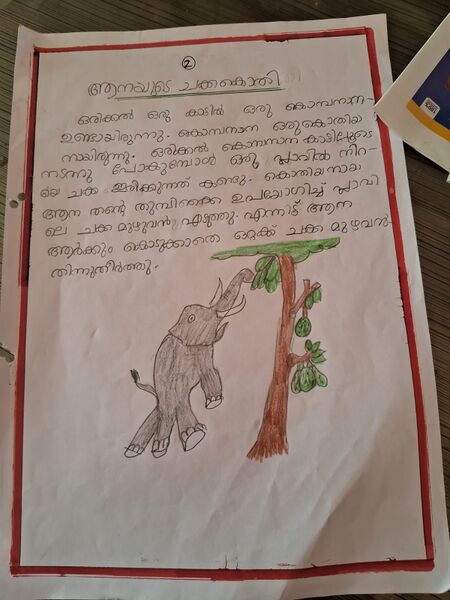 ②
ആനയുടെ ചക്കകൊതി
ഒരിക്കൽ ഒരു കാട്ടിൽ ഒരു കൊമ്പനാന-
ഉണ്ടായിരുന്നു. കൊമ്പനാന ഒരുകൊതിയ
നായിരുന്നു. ഒരിക്കൽ കൊമ്പനാന കാട്ടിലൂടെ
നടന്നു പോകുമ്പോൾ ഒരു പ്ലാവിൽ നിറ-
യെ ചക്ക ഇരിക്കുന്നത് കണ്ടു. കൊതിയനായ
ആന തന്റെ തുമ്പിക്കൈ ഉപയോഗിച്ച് പ്ലാവി
ലെ ചക്ക മുഴുവൻ എടുത്തു. എന്നിട്ട് ആന
ആർക്കും കൊടുക്കാതെ ഒറ്റക്ക് ചക്ക മുഴുവൻ-
തിന്നുതീർത്തു.